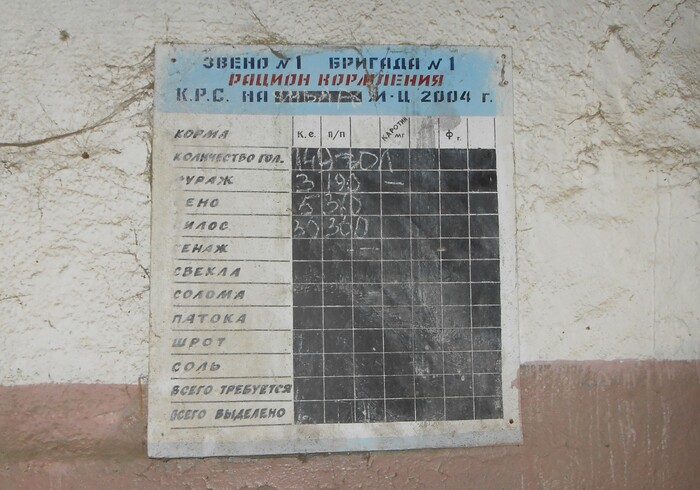 ЗВЕНО №1 БРИГАДА №1
РАЦИОН КОРМЛЕНИЯ
К.Р.С. НА М-Ц 2004 г.
КОРМА К.Е. П/П КАРОТИН МГ Ф Г.
КОЛИЧЕСТВО ГОЛ. 149 ГОЛ
УРАЖ 3 190 —
ЕНО 5 310
ИЛОС 30 360
ЕНАЖ
СВЕКЛА
СОЛОМА
ПАТОКА
ШРОТ
СОЛЬ
ВСЕГО ТРЕБУЕТСЯ
ВСЕГО ВЫДЕЛЕНО